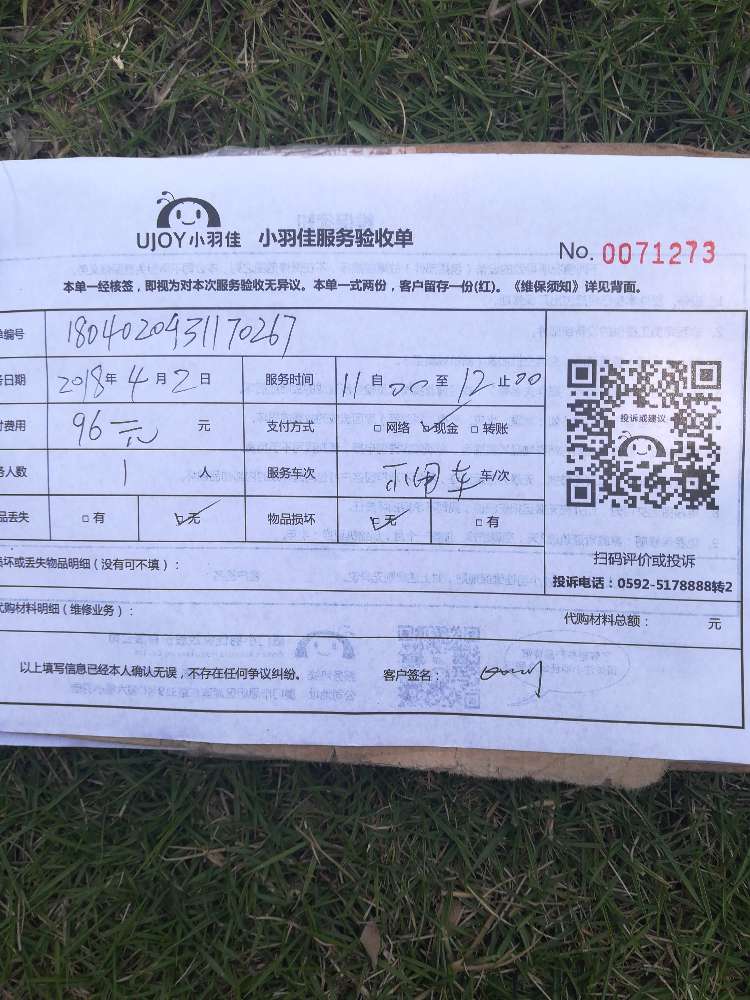 UJOY小羽佳 小羽佳服务验收单
No. 0071273
本单一经核签，即视为对本次服务验收无异议。本单一式两份，客户留存一份(红)。《维保须知》详见背面。
单编号 1804020931170267
务日期 2018年4月2日 服务时间 11自00至12止00
付费用 96元 元 支付方式 □网络 ☑现金 □转账
务人数 1 人 服务车次 不用车 车/次
品丢失 □有 ☑无 物品损坏 ☑无 □有
投诉或建议
扫码评价或投诉
投诉电话：0592-5178888转2
损坏或丢失物品明细（没有可不填）：
代购材料明细（维修业务）： 代购材料总额： 元
以上填写信息已经本人确认无误，不存在任何争议纠纷。 客户签名：